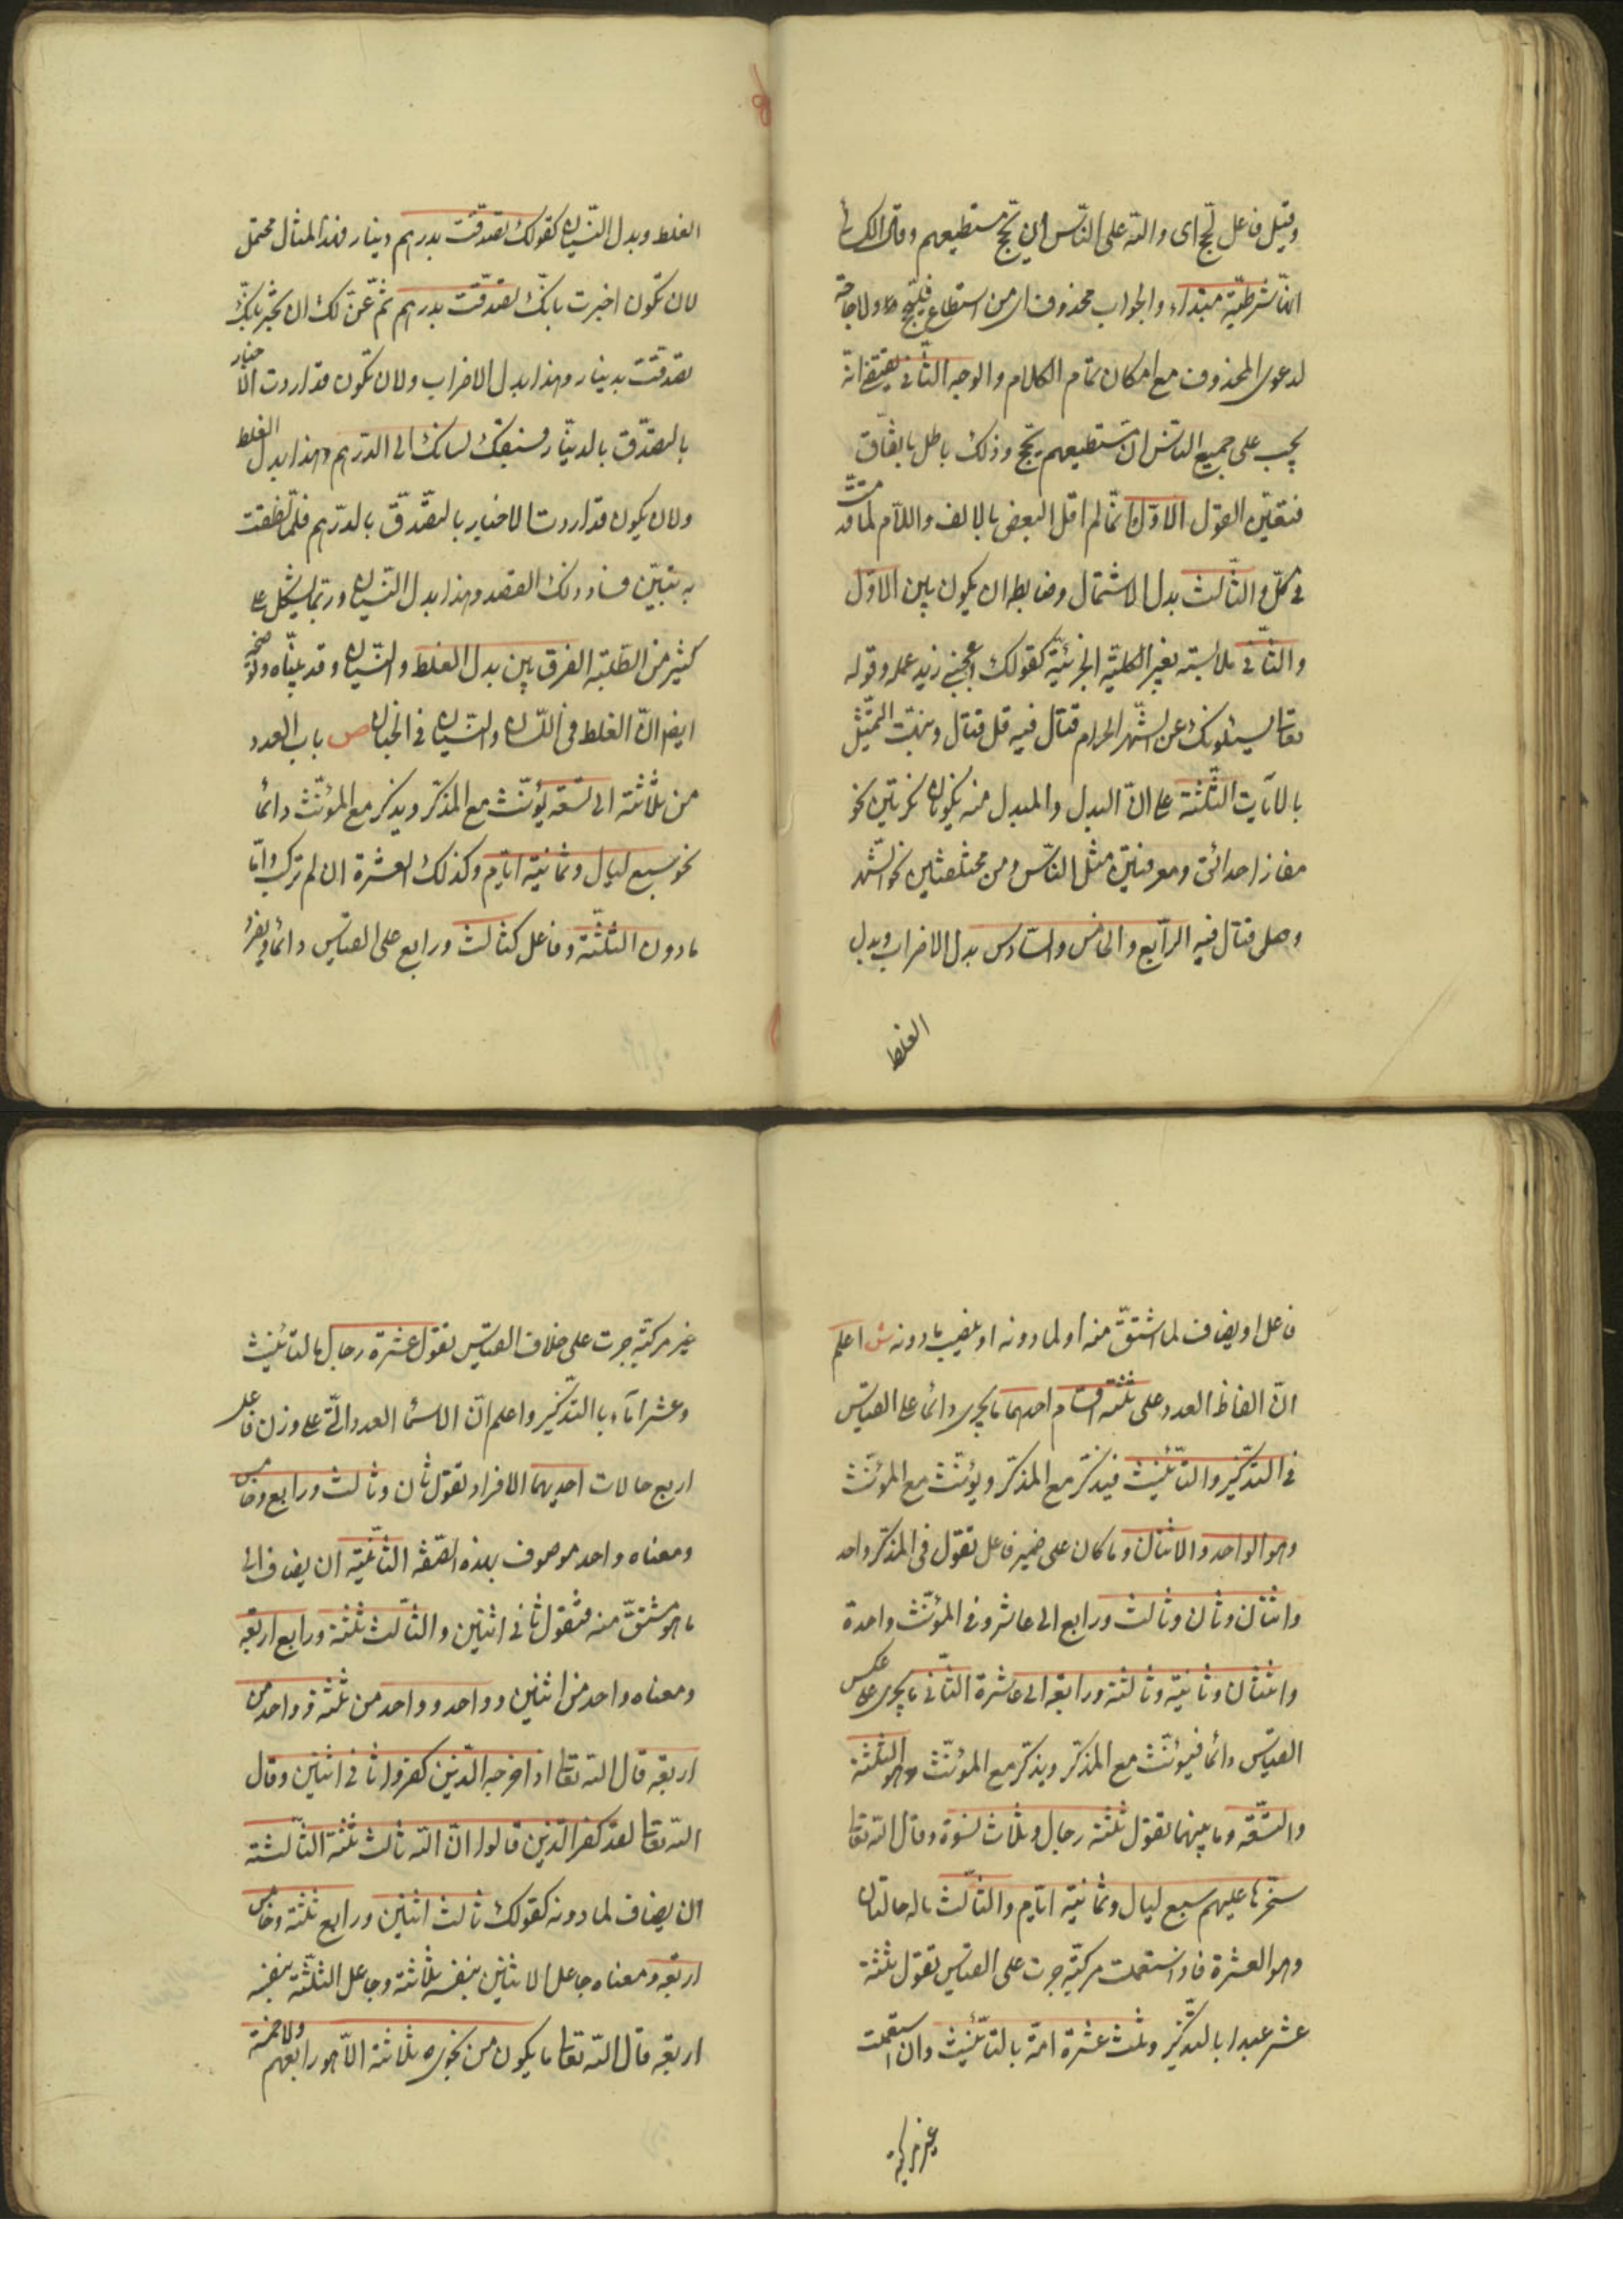 وقيل فاعل لحج اى ولله على الناس ان يحج مستطيعهم وقال الكسائى
انها شرطية مبتداء والجواب محذوف اى من استطاع فليحج ولا حاجة
لدعوى المحذوف مع امكان تمام الكلام والوجه الثانى يقتضى انه
يجب على جميع الناس ان مستطيعهم يحج وذلك باطل باتفاق
فتعين القول الاول وانما لم اقل البعض بالالف واللام لما قدمت
فى كل والثالث بدل الاشتمال وضابطه ان يكون بين الاول
والثانى ملابسة بغير الكلية الجزئية كقولك اعجبنى زيد علمه وقوله
تعالى يسئلونك عن الشهر الحرام قتال فيه قل قتال ونبهت بالتمثيل
بالآيات الثلثة على ان البدل والمبدل منه يكونان نكرتين نحو
مفازا حدائق ومعرفتين مثل الناس ومن ومختلفين نحو الشهر
وصلى قتال فيه الرابع والخامس والسادس بدل الاضراب وبدل
الغلط
الغلط وبدل النسيان كقولك تصدقت بدرهم دينار فهذا المثال محتمل
لان تكون اخبرت بانك تصدقت بدرهم ثم عن لك ان تخبر بانك
تصدقت بدينار وهذا بدل الاضراب ولان تكون قد اردت الاخبار
بالتصدق بالدينار فسبقك لسانك الى الدرهم وهذا بدل الغلط
ولان يكون قد اردت الاخبار بالتصدق بالدرهم فلما نطقت
به تبين فساد ذلك القصد وهذا بدل النسيان وربما يشكل على
كثير من الطلبة الفرق بين بدل الغلط والنسيان وقد بيناه ونوضحه
ايضا ان الغلط فى اللسان والنسيان فى الجنان ص باب العدد
من ثلاثة الى تسعة يؤنث مع المذكر ويذكر مع المؤنث دائما
نحو سبع ليال وثمانية ايام وكذلك العشرة ان لم تركب واما
مادون الثلثة وفاعل كثالث ورابع على القياس دائما ويفرد
فاعل او يضاف لما اشتق منه او لما دونه او ينصب مادونه ش اعلم
ان الفاظ العدد على ثلثة اقسام احدها ما يجرى دائما على القياس
فى التذكير والتأنيث فيذكر مع المذكر ويؤنث مع المؤنث
وهو الواحد والاثنان وما كان على ضمير فاعل تقول فى المذكر واحد
واثنان وثان وثالث ورابع الى عاشر وفى المؤنث واحدة
واثنتان وثانية وثالثة ورابعة الى عاشرة الثانى ما يجرى على عكس
القياس دائما فيؤنث مع المذكر ويذكر مع المؤنث وهو الثلثة
والتسعة وما بينهما تقول ثلثة رجال وثلاث نسوة وقال الله تعالى
سخرها عليهم سبع ليال وثمانية ايام والثالث ماله حالتان
وهو العشرة فاذا استعملت مركبة جرت على القياس تقول ثلثة
عشر عبدا بالتذكير وثلث عشرة امة بالتأنيث وان استعملت
غير مركبة
غير مركبة جرت على خلاف القياس تقول عشرة رجال بالتأنيث
وعشر اماء بالتذكير واعلم ان الاسماء العدد التى على وزن فاعل
اربع حالات احديهما الافراد تقول ثان وثالث ورابع وخامس
ومعناه واحد موصوف بهذه الصفة الثانية ان يضاف الى
ما هو مشتق منه فتقول ثانى اثنين والثالث ثلثة ورابع اربعة
ومعناه واحد من اثنين وواحد وواحد من ثلثة وواحد من
اربعة قال الله تعالى اذ اخرجه الذين كفروا ثانى اثنين وقال
الله تعالى لقد كفر الذين قالوا ان الله ثالث ثلثة الثالثة
ان يضاف لما دونه كقولك ثالث اثنين ورابع ثلثة وخامس
اربعة ومعناه جاعل الاثنين بنفسه ثلاثة وجاعل الثلثة بنفسه
اربعة قال الله تعالى ما يكون من نجوى ثلاثة الا هو رابعهم ولا خمسة